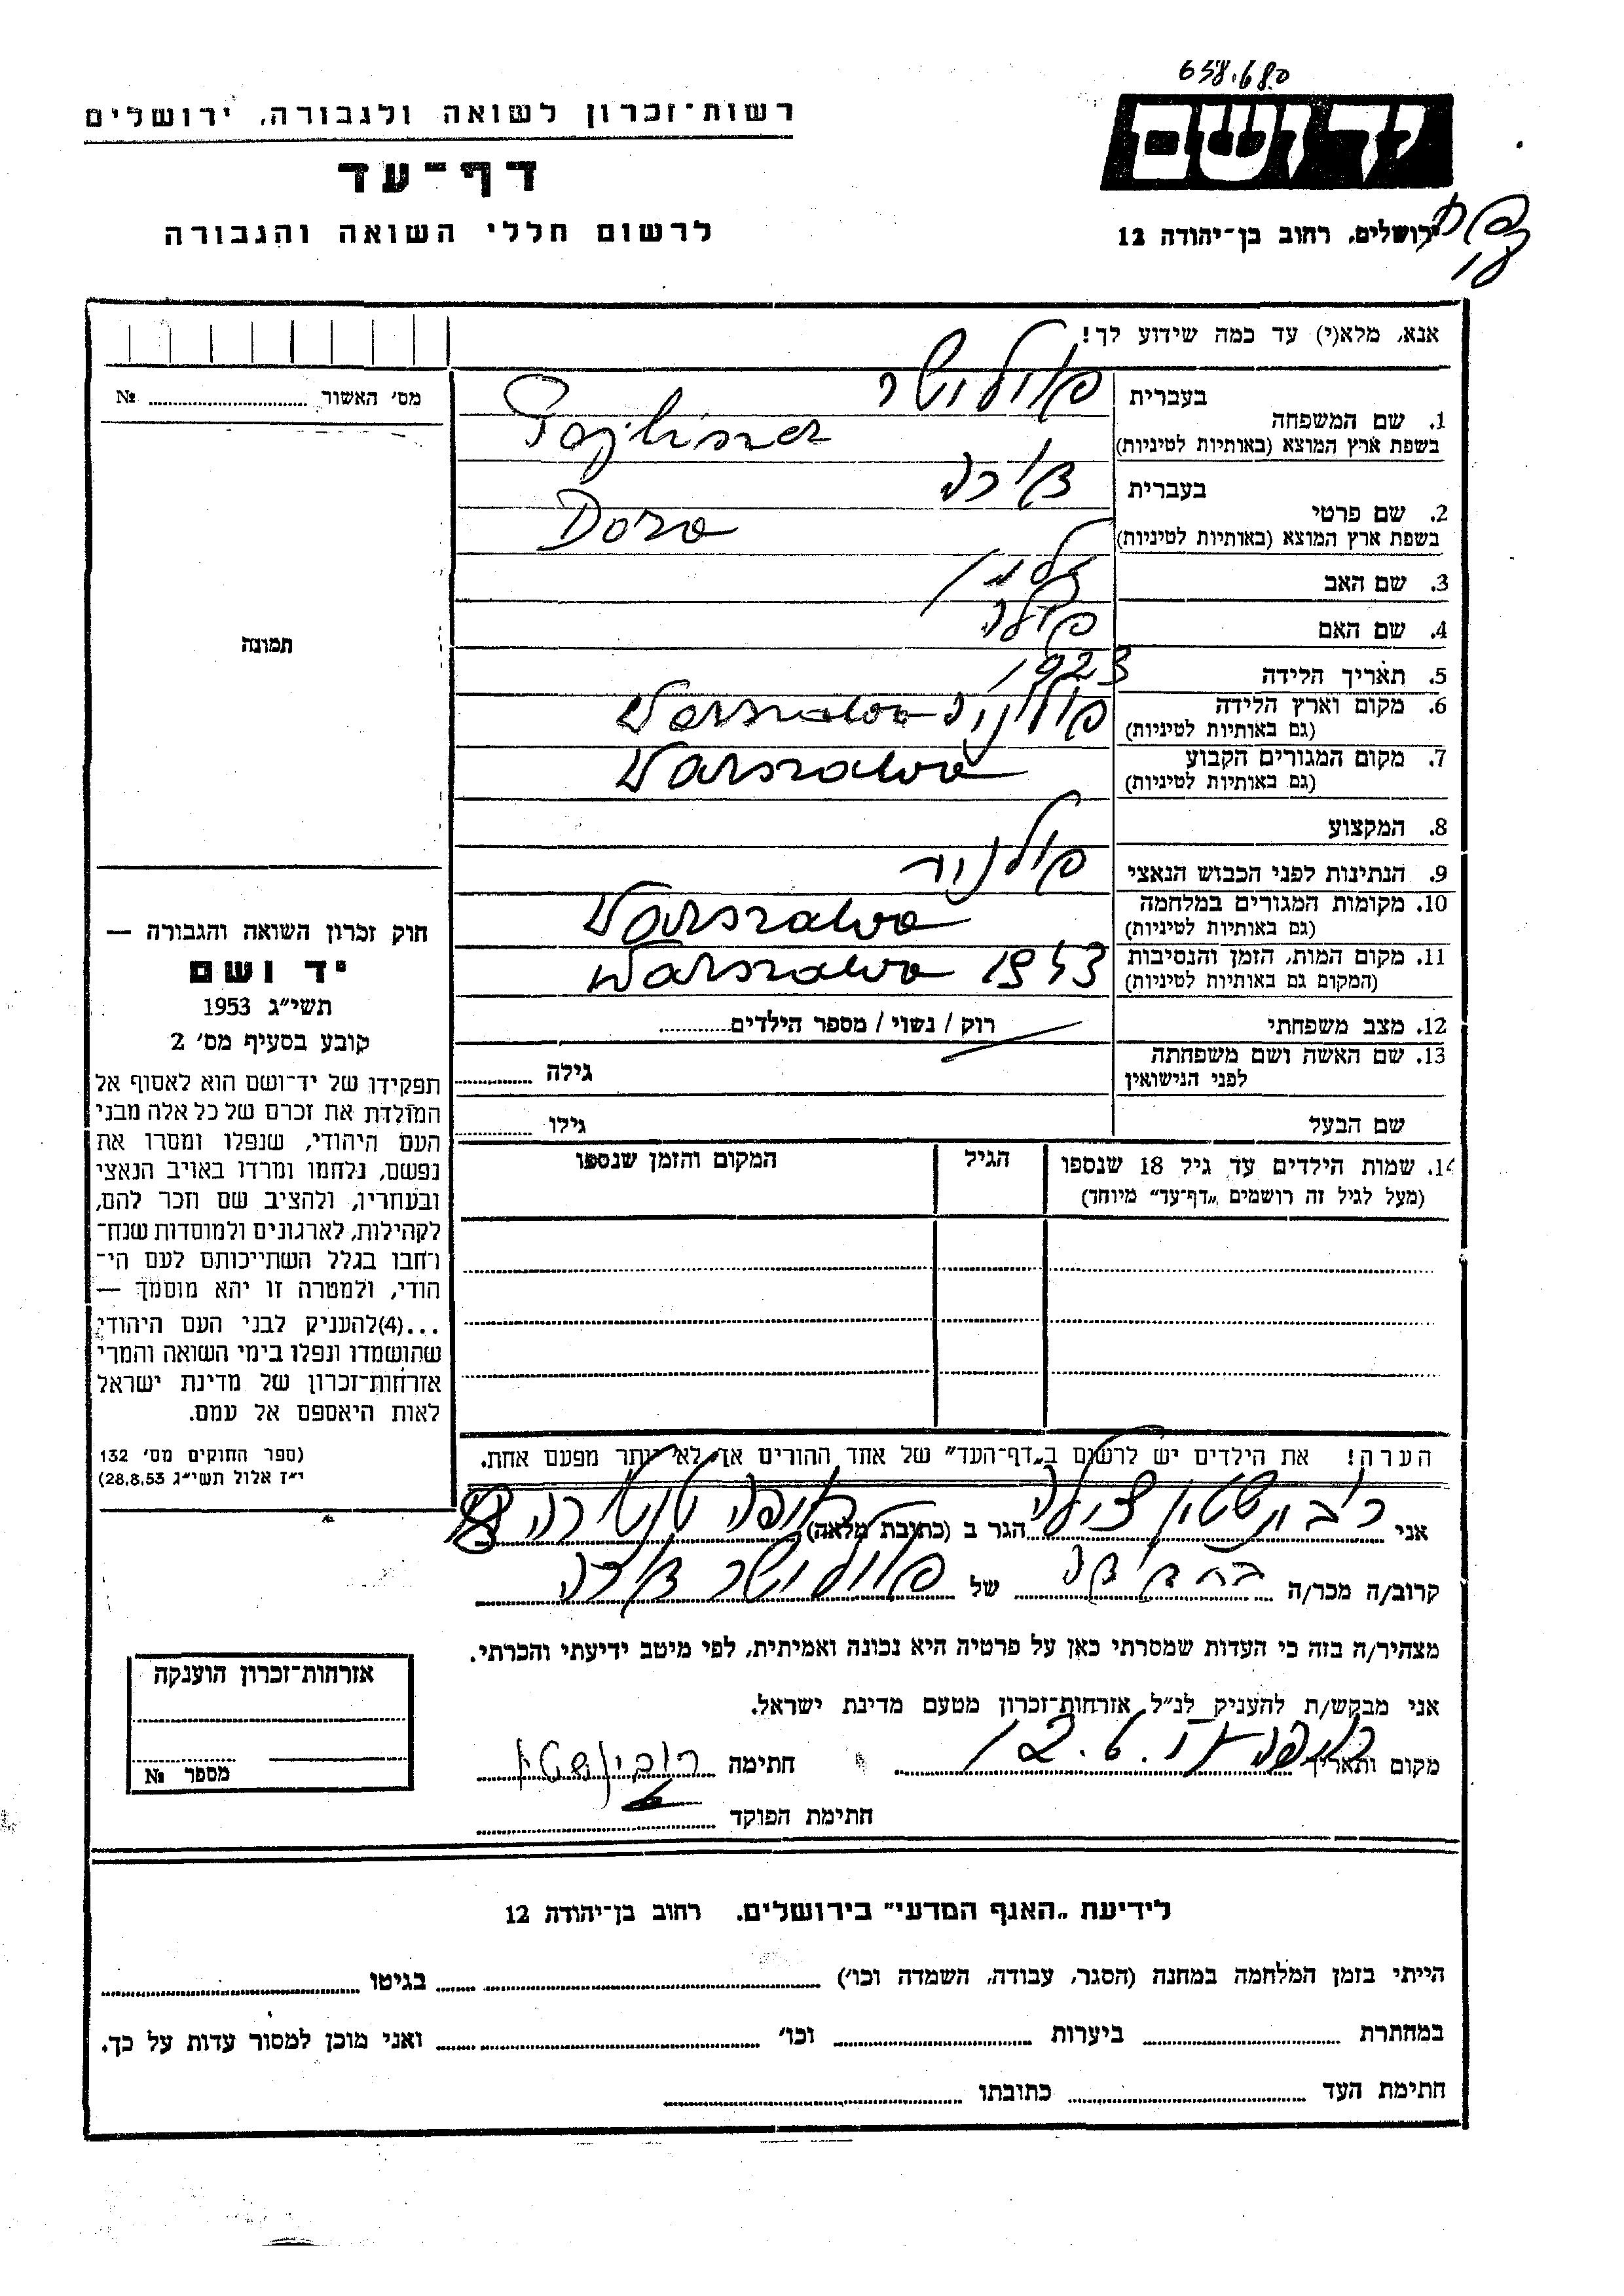 658.680
רשות-זכרון לשואה ולגבורה, ירושלים
דף-עד
לרשום חללי השואה והגבורה
ידושם
ירושלים, רחוב בן-יהודה 12
אנא, מלא(י) עד כמה שידוע לך!
מס' האשור № 
1. שם המשפחה
בעברית
בשפת ארץ המוצא (באותיות לטיניות)
2. שם פרטי
בעברית דורה
בשפת ארץ המוצא (באותיות לטיניות) Dora
3. שם האב
4. שם האם
5. תאריך הלידה 1923
6. מקום וארץ הלידה פולניה Warszawa
(גם באותיות לטיניות)
7. מקום המגורים הקבוע Warszawa
(גם באותיות לטיניות)
8. המקצוע
9. הנתינות לפני הכבוש הנאצי
10. מקומות המגורים במלחמה Warszawa
(גם באותיות לטיניות)
11. מקום המות, הזמן והנסיבות Warszawa
(המקום גם באותיות לטיניות)
12. מצב משפחתי רוק / נשוי / מספר הילדים
13. שם האשה ושם משפחתה
לפני הנישואין
גילה
שם הבעל גילו
14. שמות הילדים עד גיל 18 שנספו
(מעל לגיל זה רושמים „דף-עד" מיוחד)
הגיל
המקום והזמן שנספו
הערה! את הילדים יש לרשום ב„דף-העד" של אחד ההורים אך לא יותר מפעם אחת.
תמונה
חוק זכרון השואה והגבורה —
יד ושם
תשי"ג 1953
קובע בסעיף מס' 2
תפקידו של יד-ושם הוא לאסוף אל
המולדת את זכרם של כל אלה מבני
העם היהודי, שנפלו ומסרו את
נפשם, נלחמו ומרדו באויב הנאצי
ובעוזריו, ולהציב שם וזכר להם,
לקהילות, לארגונים ולמוסדות שנח-
רבו בגלל השתייכותם לעם הי-
הודי, ולמטרה זו יהא מוסמך —
...(4)להעניק לבני העם היהודי
שהושמדו ונפלו בימי השואה והמרי
אזרחות-זכרון של מדינת ישראל
לאות היאספם אל עמם.
(ספר החוקים מס' 132
י"ז אלול תשי"ג 28,8,53)
אני הגר ב (כתובת מלאה) חיפה
קרוב/ה מכר/ה של דורה
מצהיר/ה בזה כי העדות שמסרתי כאן על פרטיה היא נכונה ואמיתית, לפי מיטב ידיעתי והכרתי.
אני מבקש/ת להעניק לנ"ל אזרחות-זכרון מטעם מדינת ישראל.
מקום ותאריך חיפה חתימה רובינשטין
חתימת הפוקד
אזרחות-זכרון הוענקה
מספר №
לידיעת „האגף המדעי" בירושלים. רחוב בן-יהודה 12
הייתי בזמן המלחמה במחנה (הסגר, עבודה, השמדה וכו') בגיטו
במחתרת ביערות וכו' ואני מוכן למסור עדות על כך.
חתימת העד כתובתו